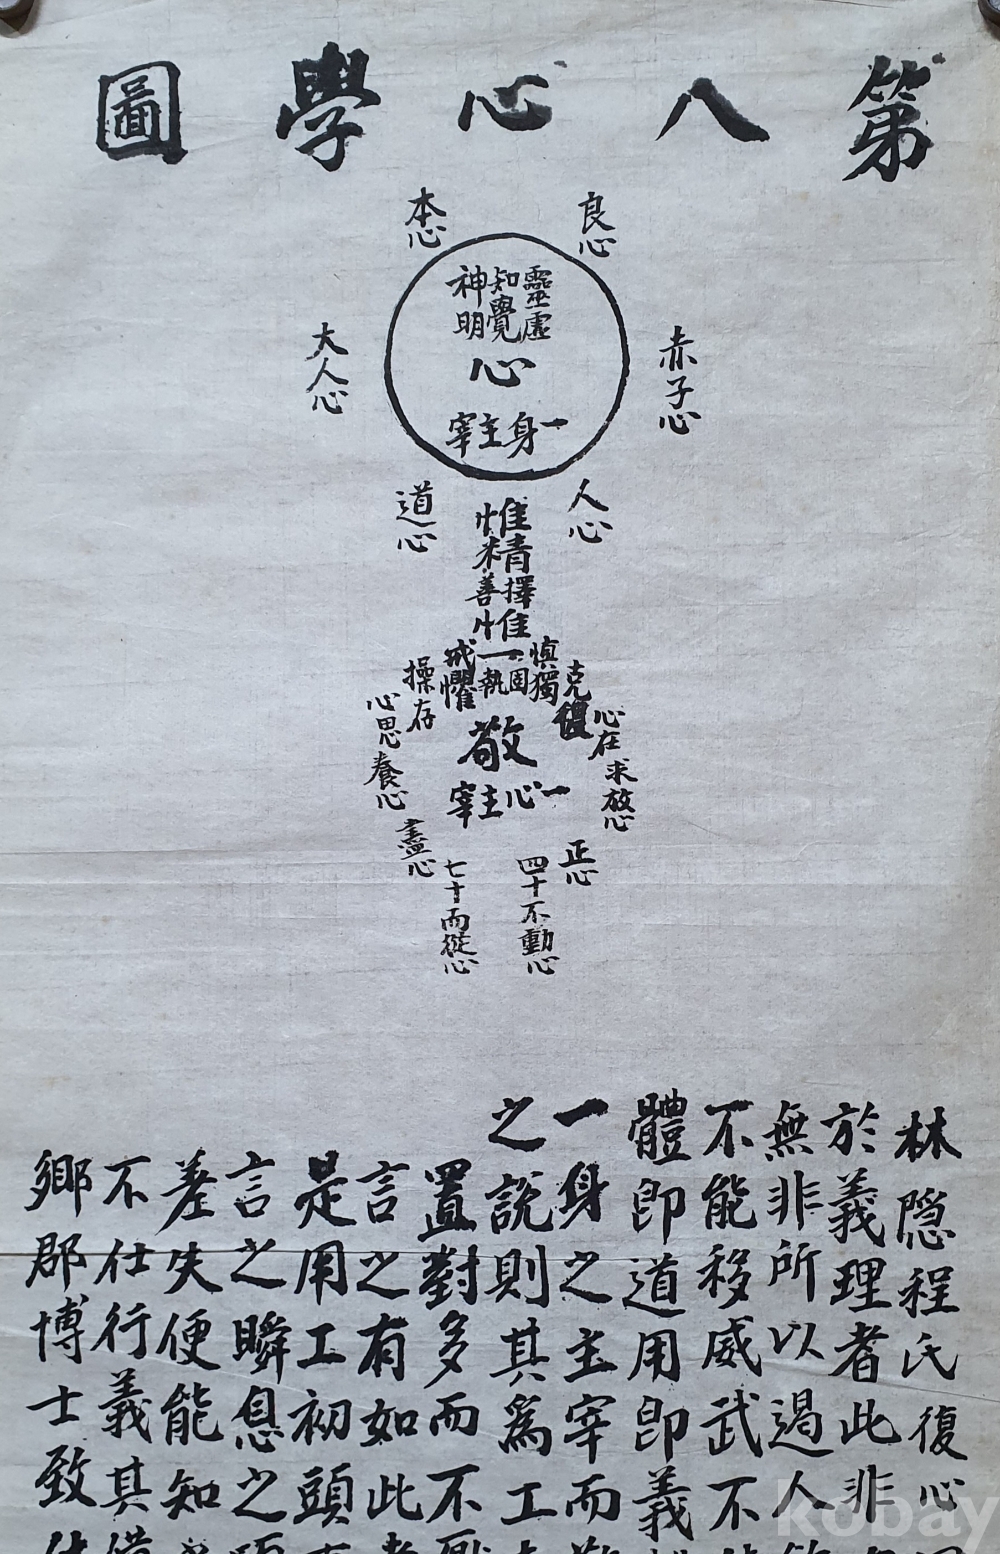 第八心學圖
良心
本心
靈虛
知覺
神明
心
一身主宰
赤子心
大人心
人心
道心
惟精
擇善
惟一
固執
慎獨
戒懼
克復
操存
心在
心思
求放心
養心
敬
一心主宰
正心
盡心
四十不動心
七十而從心
林隱程氏復心
於義理者此非
無非所以遏人
不能移威武不
體卽道用卽義
一身之主宰而
之說則其爲工
置對多而不
言之有如此
是用工初頭
言之瞬息之
差失便能知
不仕行義其
鄕郡博士致
kobay